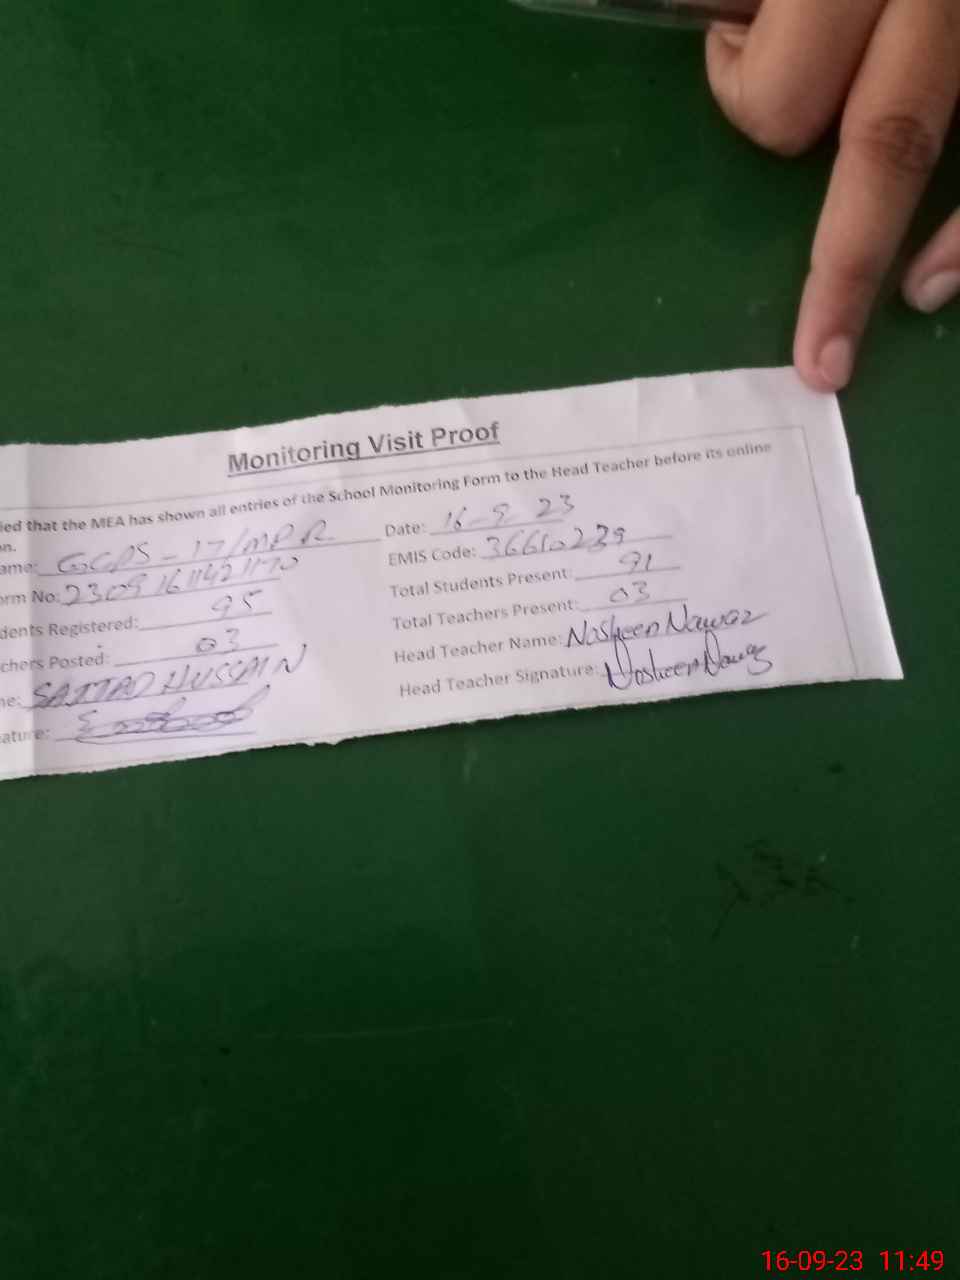 Monitoring Visit Proof
ied that the MEA has shown all entries of the School Monitoring Form to the Head Teacher before its online
on.
ame: GCPS - 17/MPR Date: 16-9-23
orm No: EMIS Code: 36610239
dents Registered: 95 Total Students Present: 91
chers Posted: 03 Total Teachers Present: 03
ne: SAJJAD HUSSAIN Head Teacher Name: Nosheen Nawaz
ature: Head Teacher Signature: Nosheen Nawaz
16-09-23 11:49